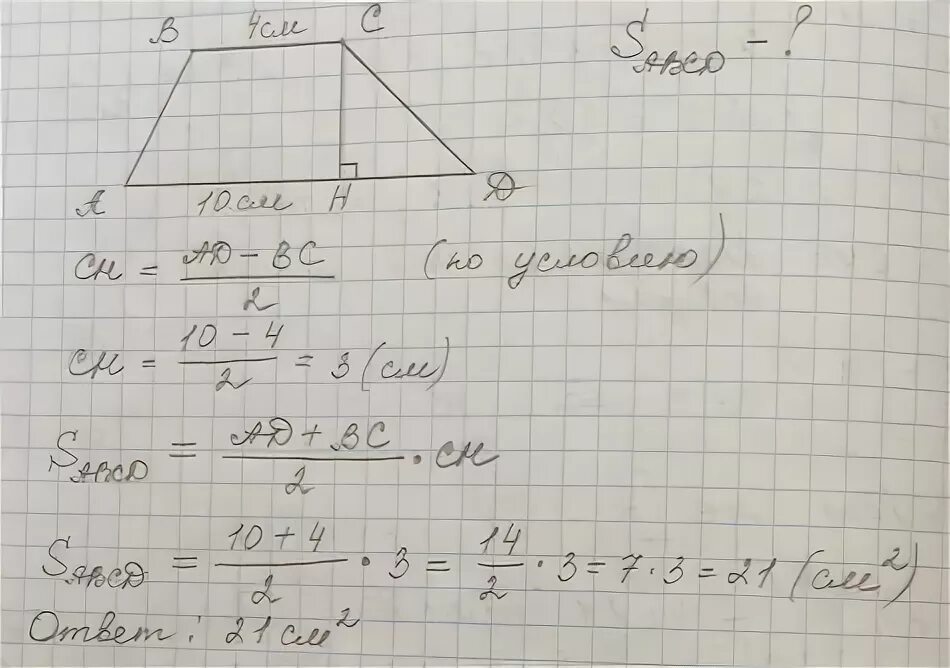 B 4см C
S_ABCD - ?
A 10см H D
CH = (AD - BC)/2 (по условию)
CH = (10 - 4)/2 = 3 (см)
S_ABCD = (AD + BC)/2 · CH
S_ABCD = (10 + 4)/2 · 3 = 14/2 · 3 = 7 · 3 = 21 (см²)
Ответ: 21 см²